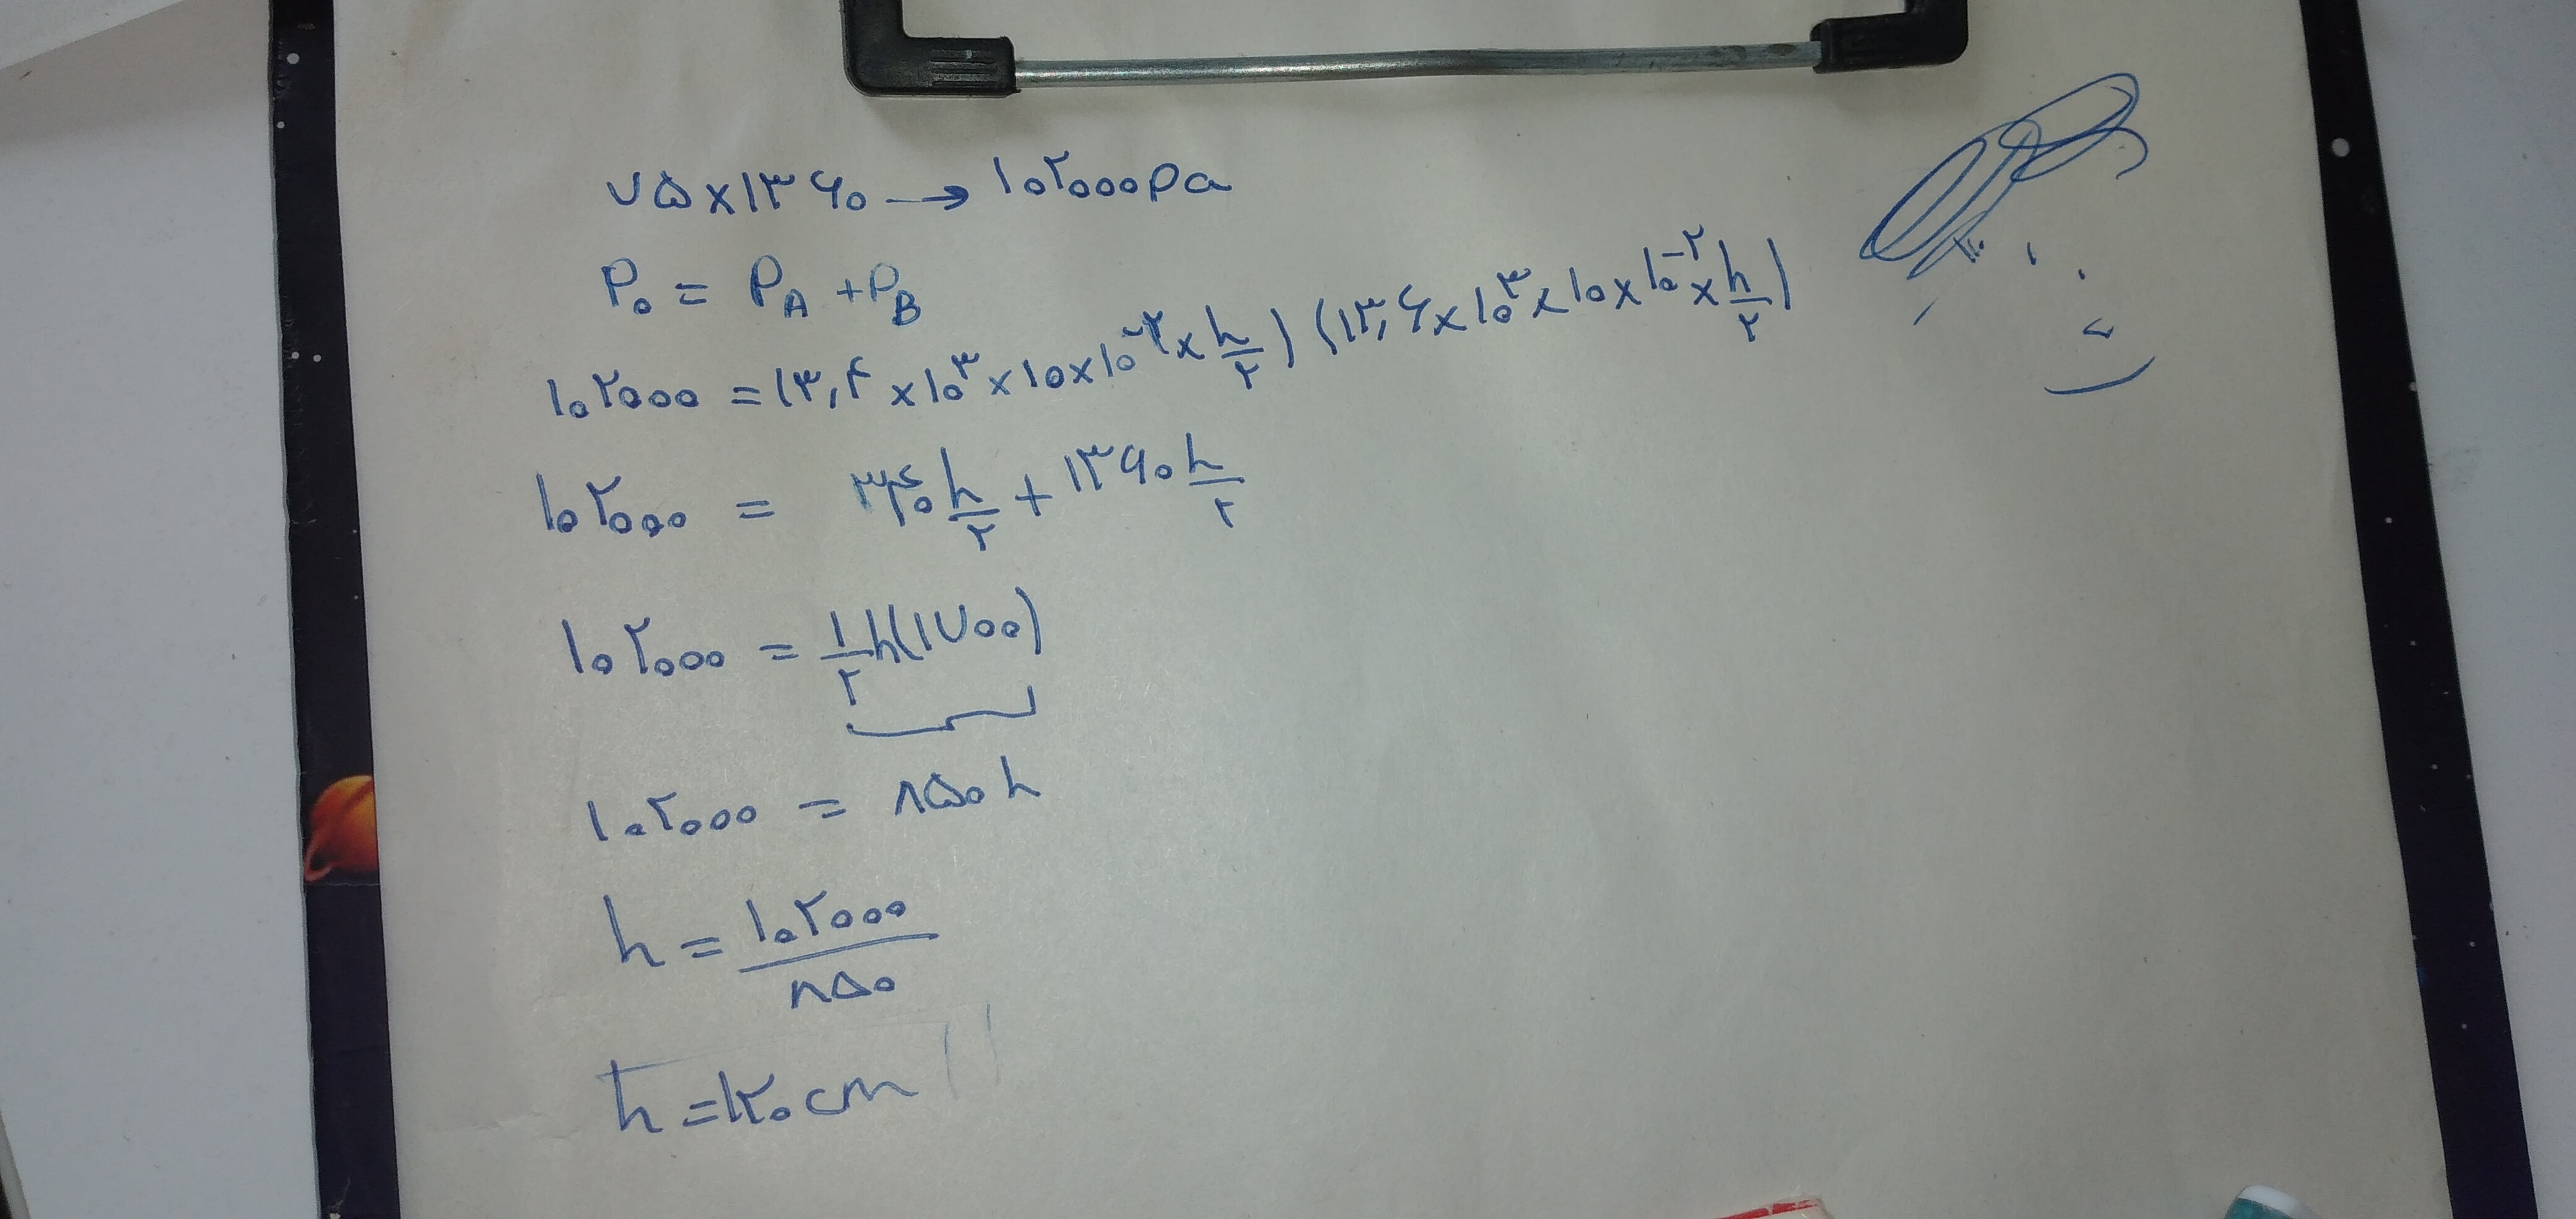 ۷۵×۱۳۶۰ → ۱۰۲۰۰۰pa
P۰ = PA + PB
۱۰۲۰۰۰ = (۳,۴ × ۱۰^۳ × ۱۰ × ۱۰^-۲ × h/۲) (۱۳,۶ × ۱۰^۳ × ۱۰ × ۱۰^-۲ × h/۲)
۱۰۲۰۰۰ = ۳۴۰ h/۲ + ۱۳۶۰ h/۲
۱۰۲۰۰۰ = ۱/۲ h(۱۷۰۰)
۱۰۲۰۰۰ = ۸۵۰ h
h = ۱۰۲۰۰۰/۸۵۰
h = ۱۲۰ cm